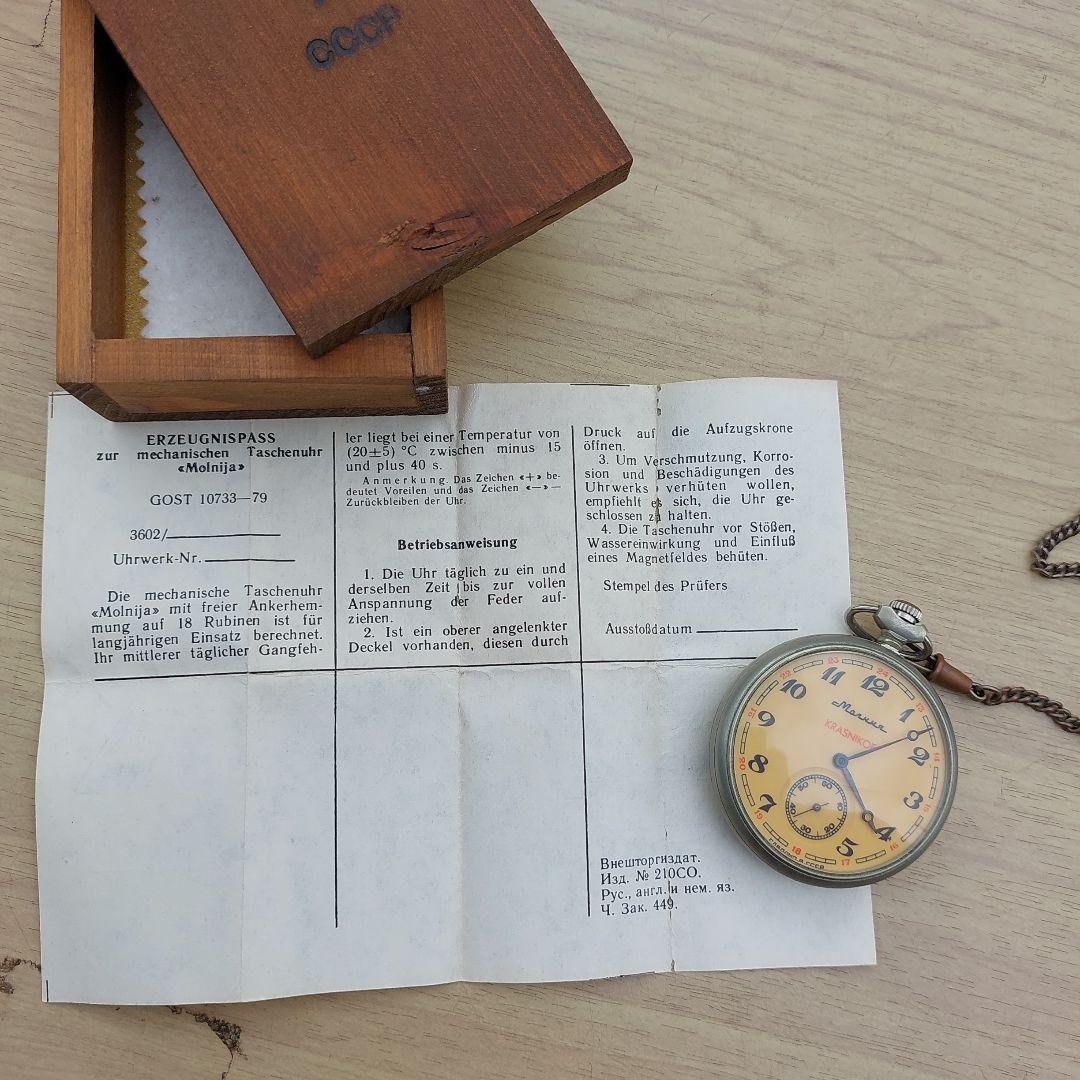 СССР
ERZEUGNISPASS
zur mechanischen Taschenuhr
«Molnija»
GOST 10733—79
3602/
Uhrwerk-Nr.
Die mechanische Taschenuhr
«Molnija» mit freier Ankerhem-
mung auf 18 Rubinen ist für
langjährigen Einsatz berechnet.
Ihr mittlerer täglicher Gangfeh-
ler liegt bei einer Temperatur von
(20±5) °C zwischen minus 15
und plus 40 s.
Anmerkung. Das Zeichen «+» be-
deutet Voreilen und das Zeichen «—» —
Zurückbleiben der Uhr.
Betriebsanweisung
1. Die Uhr täglich zu ein und
derselben Zeit bis zur vollen
Anspannung der Feder auf-
ziehen.
2. Ist ein oberer angelenkter
Deckel vorhanden, diesen durch
Druck auf die Aufzugskrone
öffnen.
3. Um Verschmutzung, Korro-
sion und Beschädigungen des
Uhrwerks verhüten wollen,
empfiehlt es sich, die Uhr ge-
schlossen zu halten.
4. Die Taschenuhr vor Stößen,
Wassereinwirkung und Einfluß
eines Magnetfeldes behüten.
Stempel des Prüfers
Ausstoßdatum
Внешторгиздат.
Изд. № 210СО.
Рус., англ. и нем. яз.
Ч. Зак. 449.
Молния
KRASNIKOF
12
1
2
3
4
5
7
8
9
10
11
24
13
14
15
16
17
18
19
20
21
22
23
60
20
30
40